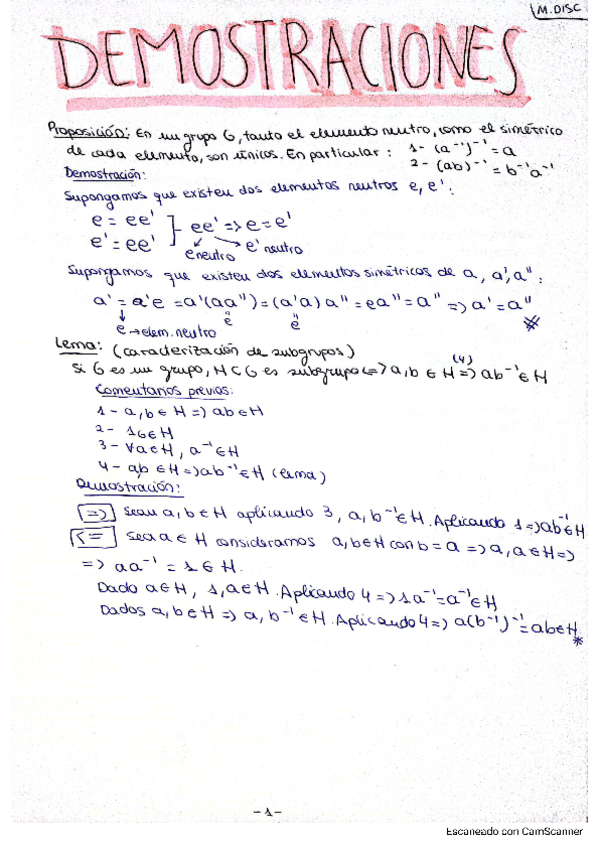 M. DISC
DEMOSTRACIONES
Proposición: En un grupo G, tanto el elemento neutro, como el simétrico
de cada elemento, son únicos. En particular: 1- (a⁻¹)⁻¹ = a
2- (ab)⁻¹ = b⁻¹a⁻¹
Demostración:
Supongamos que existen dos elementos neutros e, e':
e = ee'
e' = ee' ] ee' => e = e'
e neutro e' neutro
Supongamos que existen dos elementos simétricos de a, a', a'':
a' = a'e = a'(aa'') = (a'a)a'' = ea'' = a'' => a' = a''
e e
e → elem. neutro
Lema: (caracterización de subgrupos)
Si G es un grupo, H ⊂ G es subgrupo <=> a, b ∈ H =>(4) ab⁻¹ ∈ H
Comentarios previos:
1 - a, b ∈ H => ab ∈ H
2 - 1G ∈ H
3 - ∀a ∈ H, a⁻¹ ∈ H
4 - a, b ∈ H => ab⁻¹ ∈ H (lema)
Demostración:
=> Sean a, b ∈ H aplicando 3, a, b⁻¹ ∈ H. Aplicando 1 => ab⁻¹ ∈ H
<= Sea a ∈ H consideramos a, b ∈ H con b = a => a, a ∈ H =>
=> aa⁻¹ = 1 ∈ H.
Dado a ∈ H, 1, a ∈ H. Aplicando 4 => 1a⁻¹ = a⁻¹ ∈ H
Dados a, b ∈ H => a, b⁻¹ ∈ H. Aplicando 4 => a(b⁻¹)⁻¹ = ab ∈ H *
- 1 -
Escaneado con CamScanner